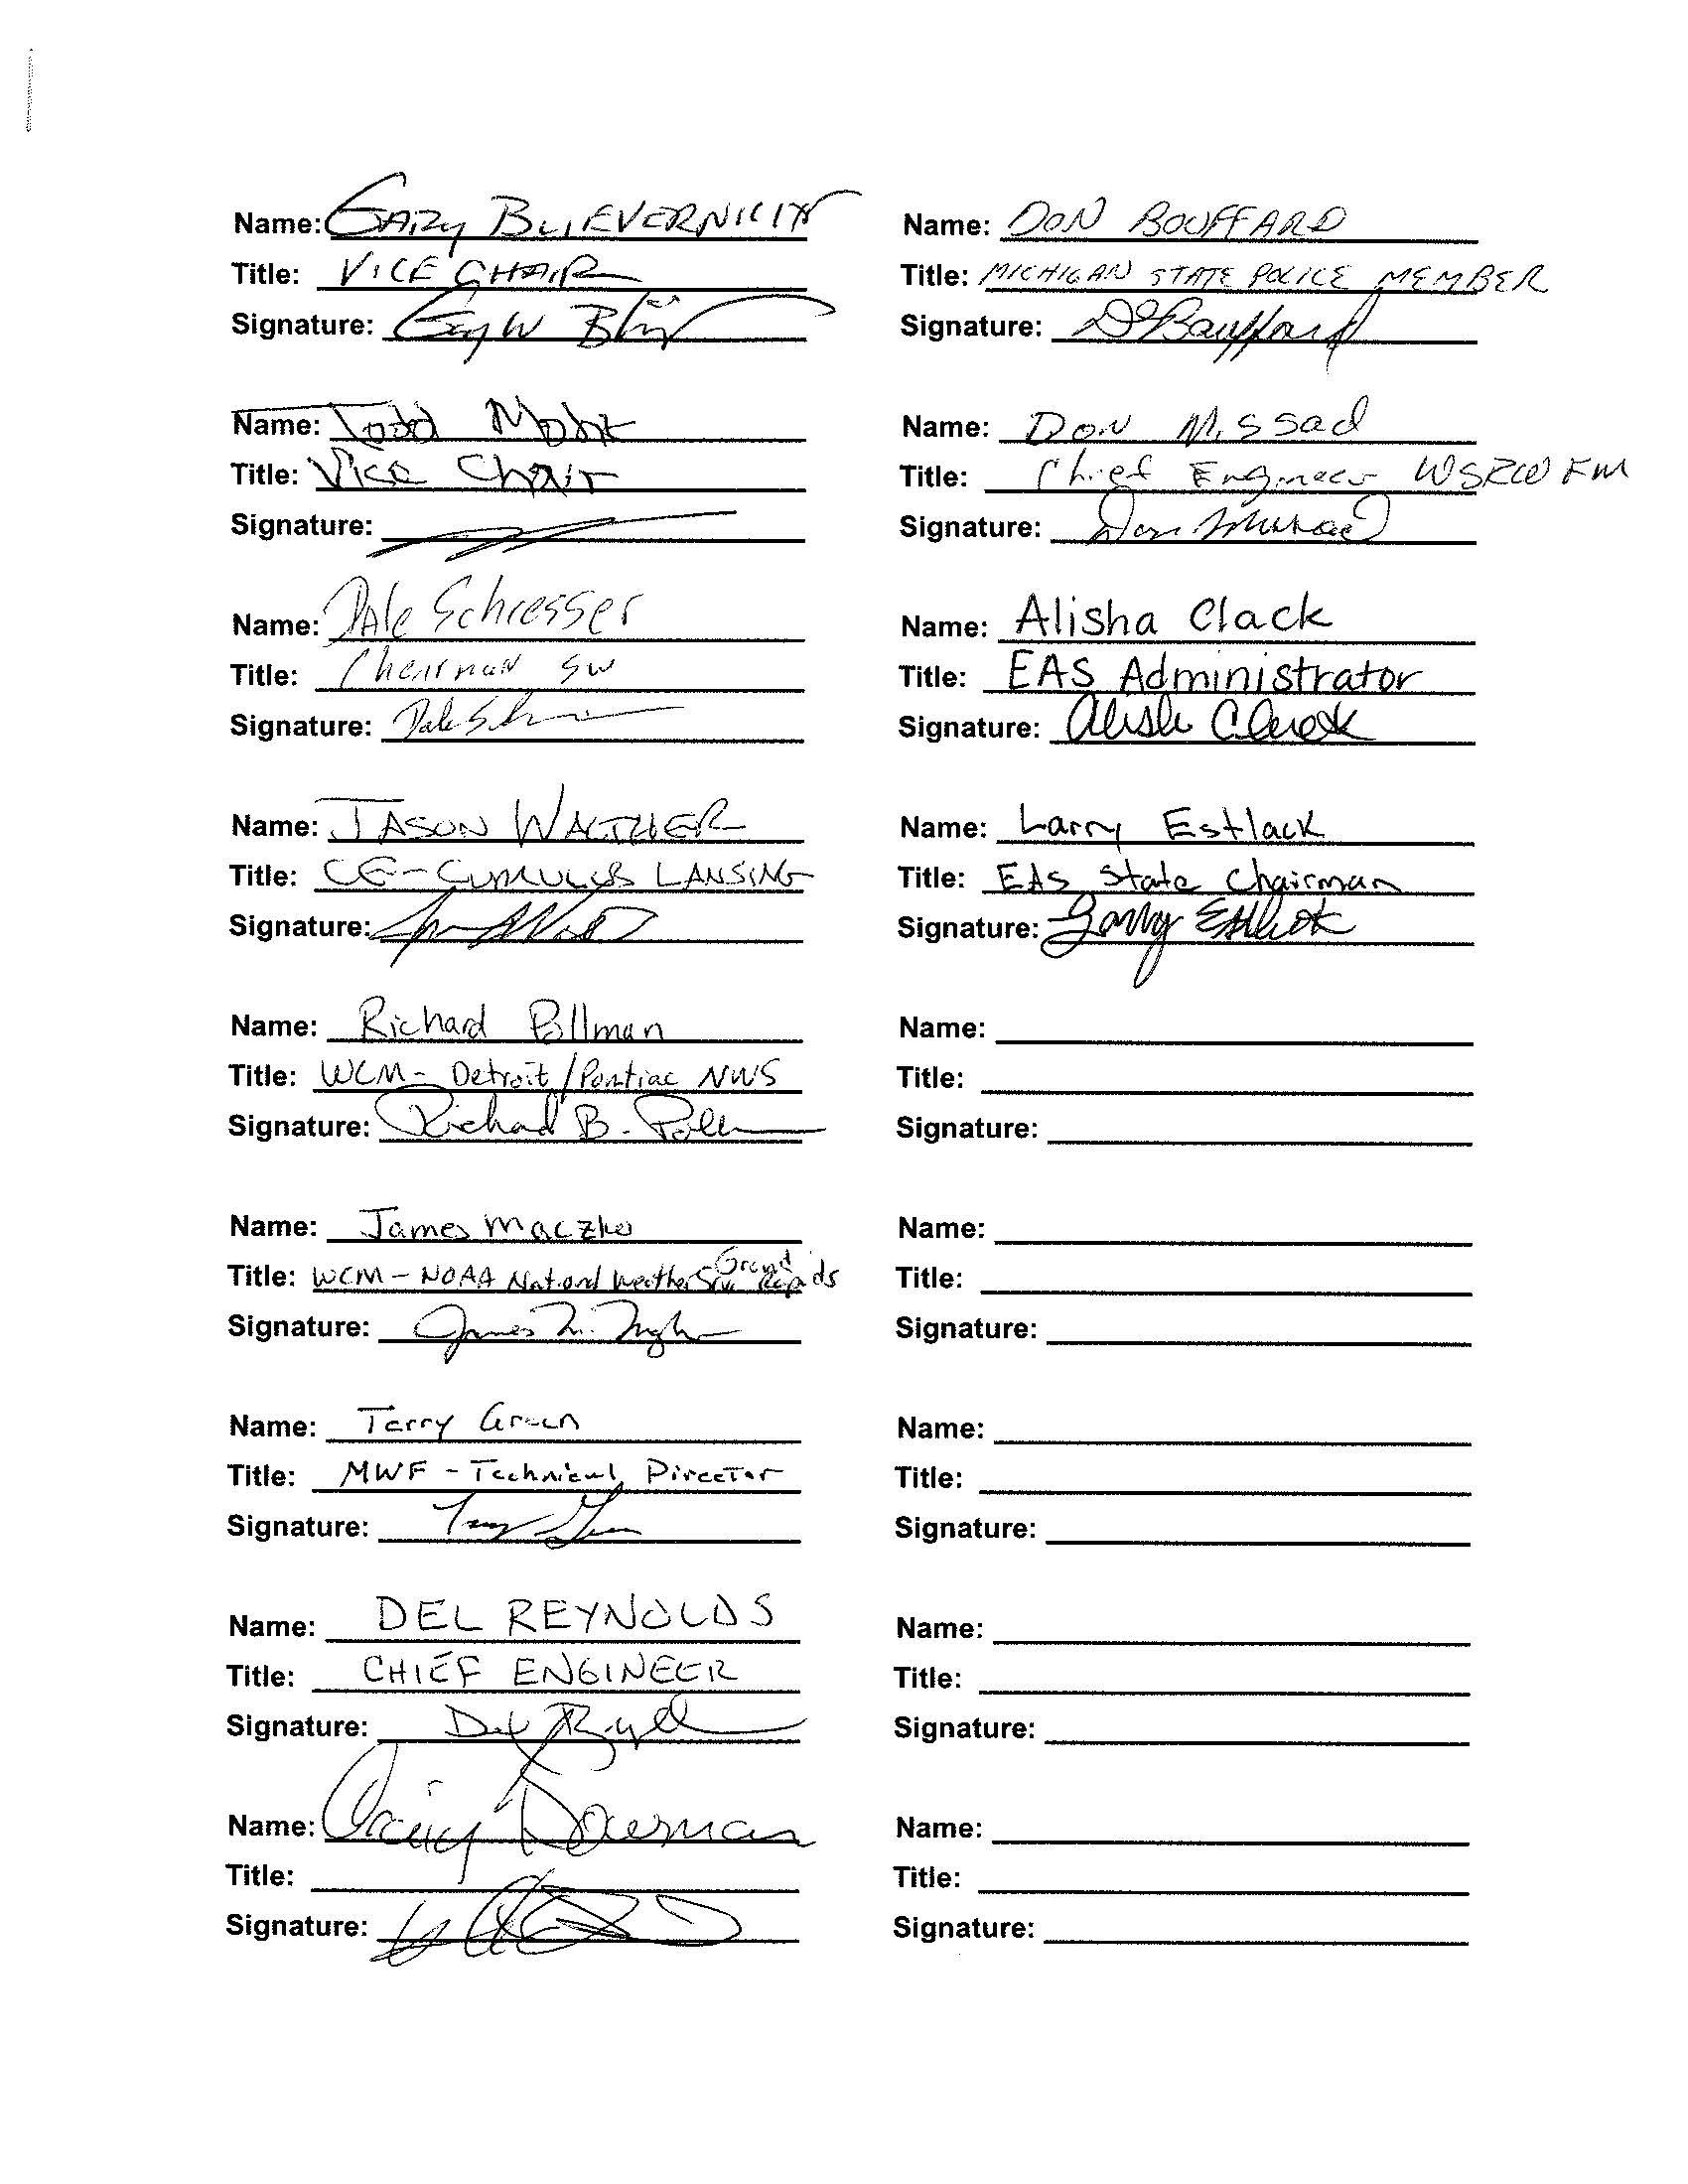 Name: GARY BLIEVERNICHT
Title: VICE CHAIR
Signature: Gary W
Name: Todd Mohr
Title: Vice Chair
Signature:
Name: Dale Schiesser
Title: Chairman SW
Signature: Dale
Name: JASON WALTHER
Title: CE-CUMULUS LANSING
Signature:
Name: Richard Pollman
Title: WCM- Detroit/Pontiac NWS
Signature: Richard B.
Name: James Maczko
Title: WCM - NOAA National Weather Grand Rapids
Signature: James
Name: Terry Green
Title: MWF - Technical Director
Signature: Terry
Name: DEL REYNOLDS
Title: CHIEF ENGINEER
Signature: Del
Name: Craig Bowman
Title:
Signature:
Name: DON BOUFFARD
Title: MICHIGAN STATE POLICE MEMBER
Signature: D Bouffard
Name: Don Missad
Title: Chief Engineer WSRW FM
Signature: Don Missad
Name: Alisha Clack
Title: EAS Administrator
Signature: Alisha Clack
Name: Larry Estlack
Title: EAS State Chairman
Signature: Larry Estlack
Name:
Title:
Signature:
Name:
Title:
Signature:
Name:
Title:
Signature:
Name:
Title:
Signature:
Name:
Title:
Signature: